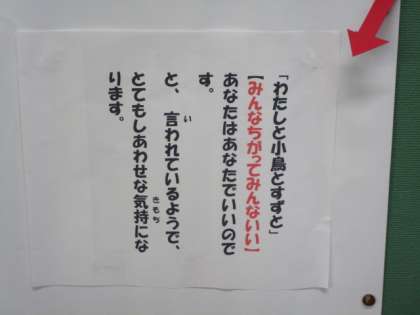 「わたしと小鳥とすずと」
【みんなちがってみんないい】
あなたはあなたでいいので
す。
と、言われているようで、
とてもしあわせな気持にな
ります。